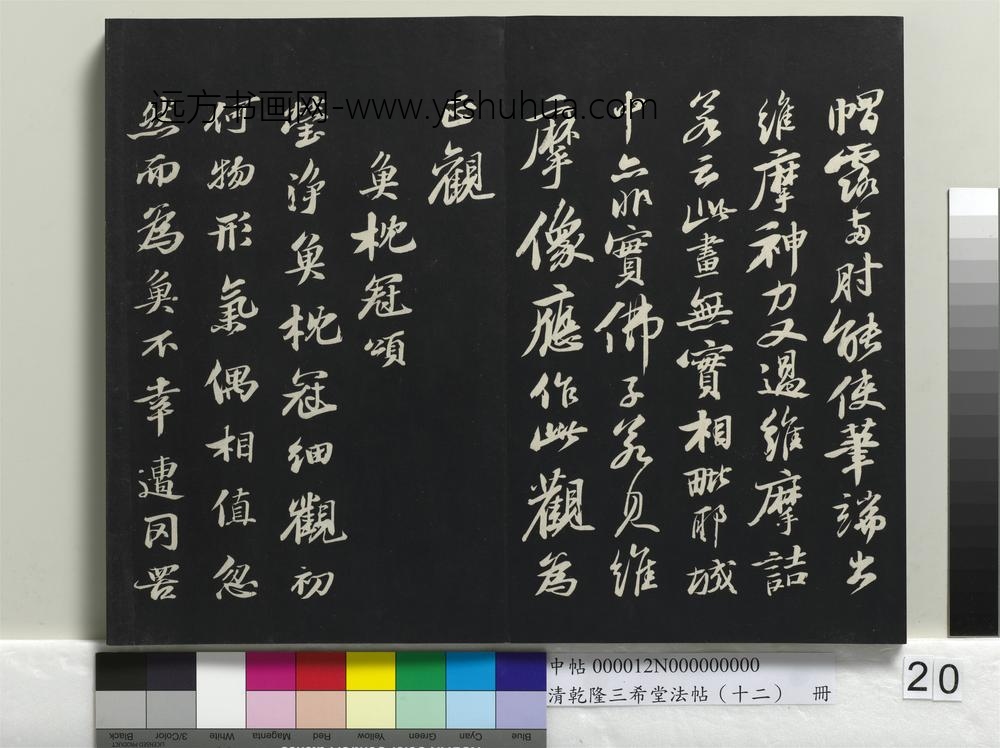 帽露两肘能使筆端出
維摩神力又過維摩詰
若云此畫無實相毗耶城
中亦非實佛子若見維
摩像應作此觀為
正觀
魚枕冠頌
瑩淨魚枕冠細觀初
何物形氣偶相值忽
然而為魚不幸遭网罟
远方书画网-www.yfshuhua.com
中帖 000012N000000000
清乾隆三希堂法帖（十二） 冊
20
Black
3/Color
White
Magenta
Red
Yellow
Green
Cyan
Blue